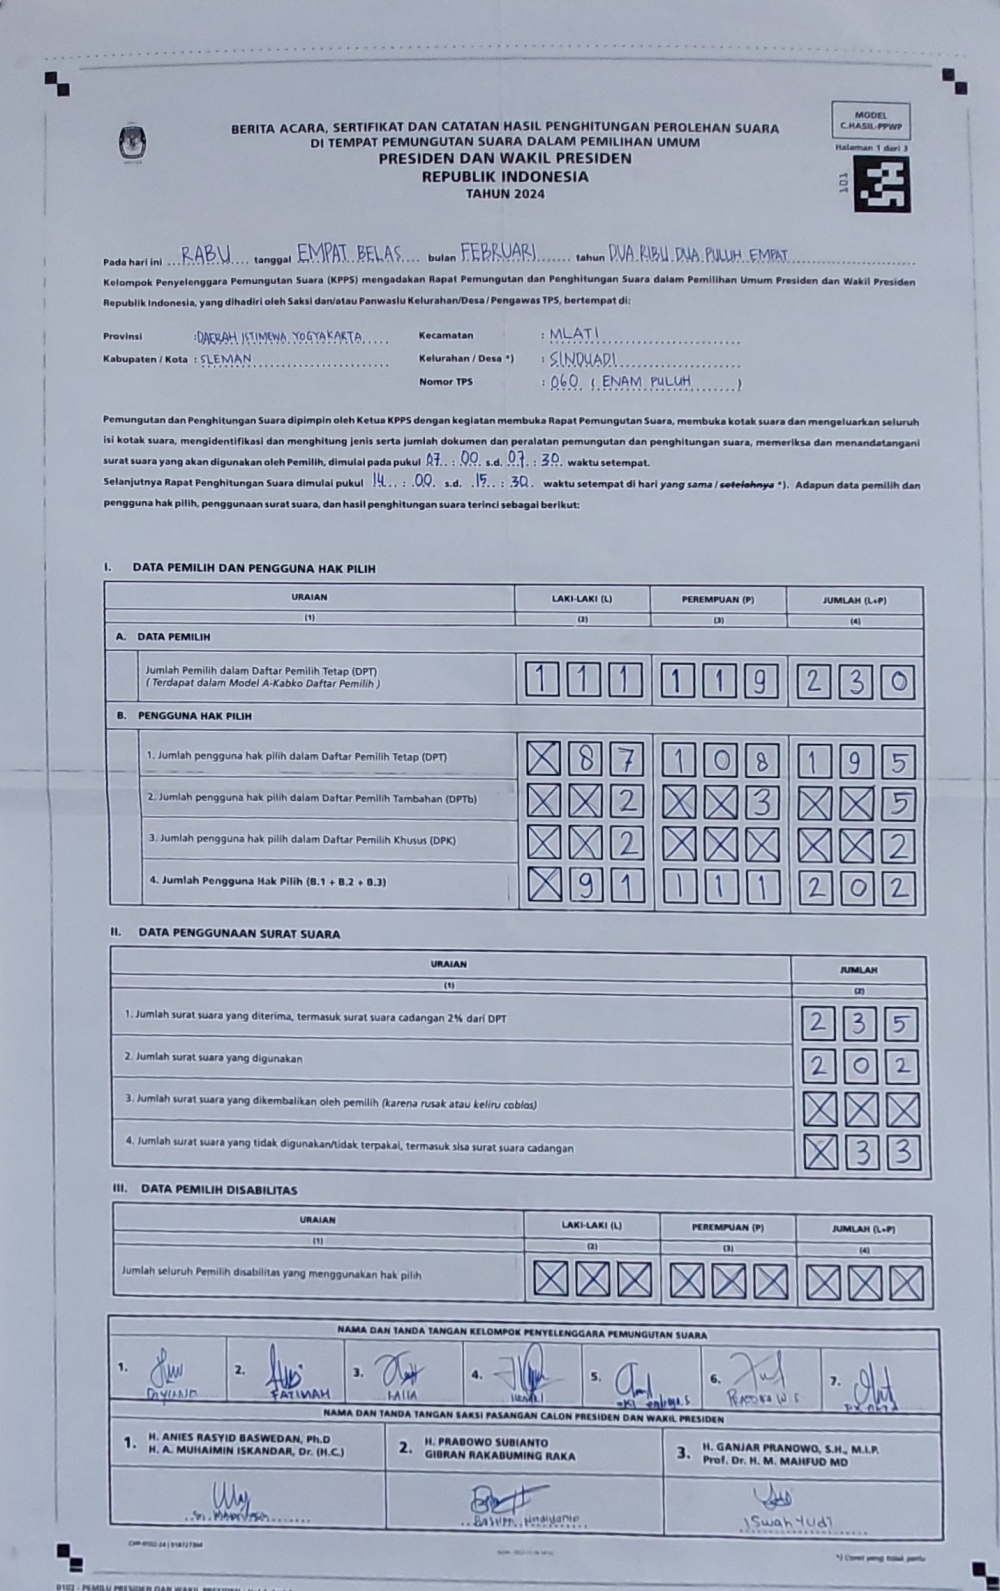 MODEL
C.HASIL-PPWP
Halaman 1 dari 3
101
BERITA ACARA, SERTIFIKAT DAN CATATAN HASIL PENGHITUNGAN PEROLEHAN SUARA
DI TEMPAT PEMUNGUTAN SUARA DALAM PEMILIHAN UMUM
PRESIDEN DAN WAKIL PRESIDEN
REPUBLIK INDONESIA
TAHUN 2024
Pada hari ini RABU tanggal EMPAT BELAS bulan FEBRUARI tahun DUA RIBU DUA PULUH EMPAT
Kelompok Penyelenggara Pemungutan Suara (KPPS) mengadakan Rapat Pemungutan dan Penghitungan Suara dalam Pemilihan Umum Presiden dan Wakil Presiden
Republik Indonesia, yang dihadiri oleh Saksi dan/atau Panwaslu Kelurahan/Desa / Pengawas TPS, bertempat di:
Provinsi : DAERAH ISTIMEWA YOGYAKARTA Kecamatan : MLATI
Kabupaten / Kota : SLEMAN Kelurahan / Desa *) : SINDUADI
Nomor TPS : 060 ( ENAM PULUH )
Pemungutan dan Penghitungan Suara dipimpin oleh Ketua KPPS dengan kegiatan membuka Rapat Pemungutan Suara, membuka kotak suara dan mengeluarkan seluruh
isi kotak suara, mengidentifikasi dan menghitung jenis serta jumlah dokumen dan peralatan pemungutan dan penghitungan suara, memeriksa dan menandatangani
surat suara yang akan digunakan oleh Pemilih, dimulai pada pukul 07 : 00 s.d. 07 : 30 waktu setempat.
Selanjutnya Rapat Penghitungan Suara dimulai pukul 14 : 00 s.d. 15 : 30 waktu setempat di hari yang sama / setelahnya *). Adapun data pemilih dan
pengguna hak pilih, penggunaan surat suara, dan hasil penghitungan suara terinci sebagai berikut:
I. DATA PEMILIH DAN PENGGUNA HAK PILIH
URAIAN LAKI-LAKI (L) PEREMPUAN (P) JUMLAH (L+P)
(1) (2) (3) (4)
A. DATA PEMILIH
Jumlah Pemilih dalam Daftar Pemilih Tetap (DPT) 1 1 1 1 1 9 2 3 0
( Terdapat dalam Model A-Kabko Daftar Pemilih )
B. PENGGUNA HAK PILIH
1. Jumlah pengguna hak pilih dalam Daftar Pemilih Tetap (DPT) X 8 7 1 0 8 1 9 5
2. Jumlah pengguna hak pilih dalam Daftar Pemilih Tambahan (DPTb) X X 2 X X 3 X X 5
3. Jumlah pengguna hak pilih dalam Daftar Pemilih Khusus (DPK) X X 2 X X X X X 2
4. Jumlah Pengguna Hak Pilih (B.1 + B.2 + B.3) X 9 1 1 1 1 2 0 2
II. DATA PENGGUNAAN SURAT SUARA
URAIAN JUMLAH
(1) (2)
1. Jumlah surat suara yang diterima, termasuk surat suara cadangan 2% dari DPT 2 3 5
2. Jumlah surat suara yang digunakan 2 0 2
3. Jumlah surat suara yang dikembalikan oleh pemilih (karena rusak atau keliru coblos) X X X
4. Jumlah surat suara yang tidak digunakan/tidak terpakai, termasuk sisa surat suara cadangan X 3 3
III. DATA PEMILIH DISABILITAS
URAIAN LAKI-LAKI (L) PEREMPUAN (P) JUMLAH (L+P)
(1) (2) (3) (4)
Jumlah seluruh Pemilih disabilitas yang menggunakan hak pilih X X X X X X X X X
NAMA DAN TANDA TANGAN KELOMPOK PENYELENGGARA PEMUNGUTAN SUARA
1. 2. 3. 4. 5. 6. 7.
FATIMAH
NAMA DAN TANDA TANGAN SAKSI PASANGAN CALON PRESIDEN DAN WAKIL PRESIDEN
1. H. ANIES RASYID BASWEDAN, Ph.D
H. A. MUHAIMIN ISKANDAR, Dr. (H.C.)
2. H. PRABOWO SUBIANTO
GIBRAN RAKABUMING RAKA
3. H. GANJAR PRANOWO, S.H., M.I.P.
Prof. Dr. H. M. MAHFUD MD
ISwahYudi
*) Coret yang tidak perlu